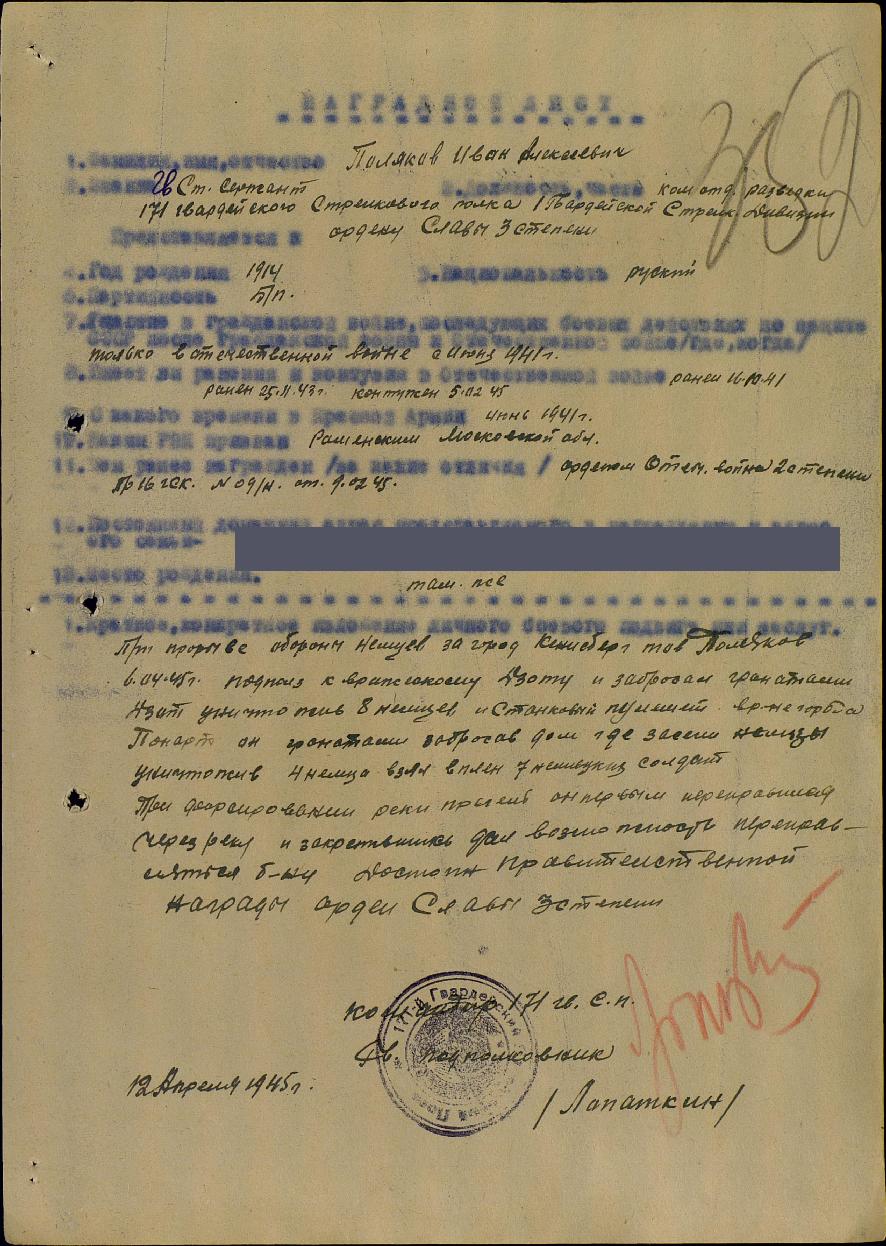 НАГРАДНОЙ ЛИСТ
1. Фамилия, имя, отчество Поляков Иван Алексеевич
2. Звание Гв Ст. Сержант 3. Должность, часть ком отд. разведки
171 гвардейского Стрелкового полка 1 Гвардейской Стрелк. Дивизии
Представляется к ордену Славы 3 степени
4. Год рождения 1914 5. Национальность руский
6. Партийность б/п.
7. Участие в гражданской войне, последующих боевых действиях по защите
СССР после гражданской войны и отечественной войне /где, когда/
только в отечественной войне с июня 1941 г.
8. Имеет ли ранения и контузии в Отечественной войне ранен 16.10.41
ранен 25.11.43г. контужен 5.02 45
9. С какого времени в Красной Армии июнь 1941 г.
10. Каким РВК призван Раменским Московской обл.
11. Чем ранее награжден /за какие отличия/ орденом Отеч. война 2 степени
Пр 16 гск. № 09/н. от. 9.02 45.
12. Постоянный домашний адрес представляемого к награждению и адрес
его семьи-
13. Место рождения. там. же
1. Краткое, конкретное изложение личного боевого подвига или заслуг.
При прорыве обороны немцев за город Кенисберг тов Поляков
6.04.45г. подполз к вражескому Дзоту и забросал гранатами
Дзот уничтожив 8 немцев и Станковый пулемет.
Понарт он гранатами забросав дом где засели немцы
уничтожив 4 немца взял в плен 7 немецких солдат
При форсировании реки прегель он первым переправился
через реку и закрепившись дал возможность переправ-
ляться б-ну Достоин правительственной
награды орден Славы 3 степени
Командир 171 гв. с.п.
Гв. подполковник
12 Апреля 1945 г.
/Лопаткин/
171-й Гвардейский